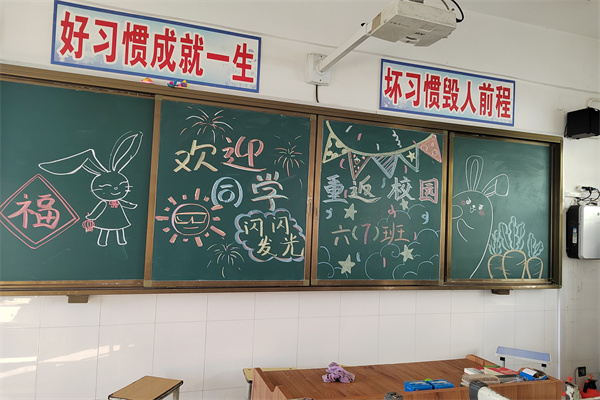 好习惯成就一生
坏习惯毁人前程
福
欢迎
同学
闪闪
发光
重返校园
六(7)班